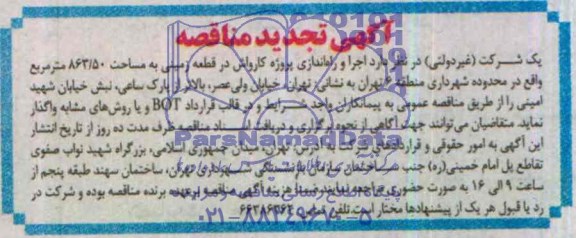 آگهی تجدید مناقصه
یک شرکت (غیردولتی) در نظر دارد اجرا و راه‌اندازی پروژه کارواش در قطعه زمینی به مساحت ۸۶۳/۵۰ مترمربع
واقع در محدوده شهرداری منطقه ۶ تهران به نشانی: تهران، خیابان ولی‌عصر، بالاتر از پارک ساعی، نبش خیابان شهید
امینی را از طریق مناقصه عمومی به پیمانکاران واجد شرایط و در قالب قرارداد BOT و یا روش‌های مشابه واگذار
نماید. متقاضیان می‌توانند جهت آگاهی از نحوه برگزاری و دریافت اسناد مناقصه ظرف مدت ده روز از تاریخ انتشار
این آگهی به امور حقوقی و قراردادهای خیابان جمهوری اسلامی، بزرگراه شهید نواب صفوی
تقاطع پل امام خمینی(ره) جنب ساختمان سازمان بازنشستگی شهرداری تهران، ساختمان سهند طبقه پنجم از
ساعت ۹ الی ۱۶ به صورت حضوری مراجعه نمایند. ضمنا هزینه آگهی مناقصه برعهده برنده مناقصه بوده و شرکت در
رد یا قبول هر یک از پیشنهادها مختار است. تلفن تماس:
ParsNamadData
۰۲۱-۸۸۳۴۹۶۷۰-۵